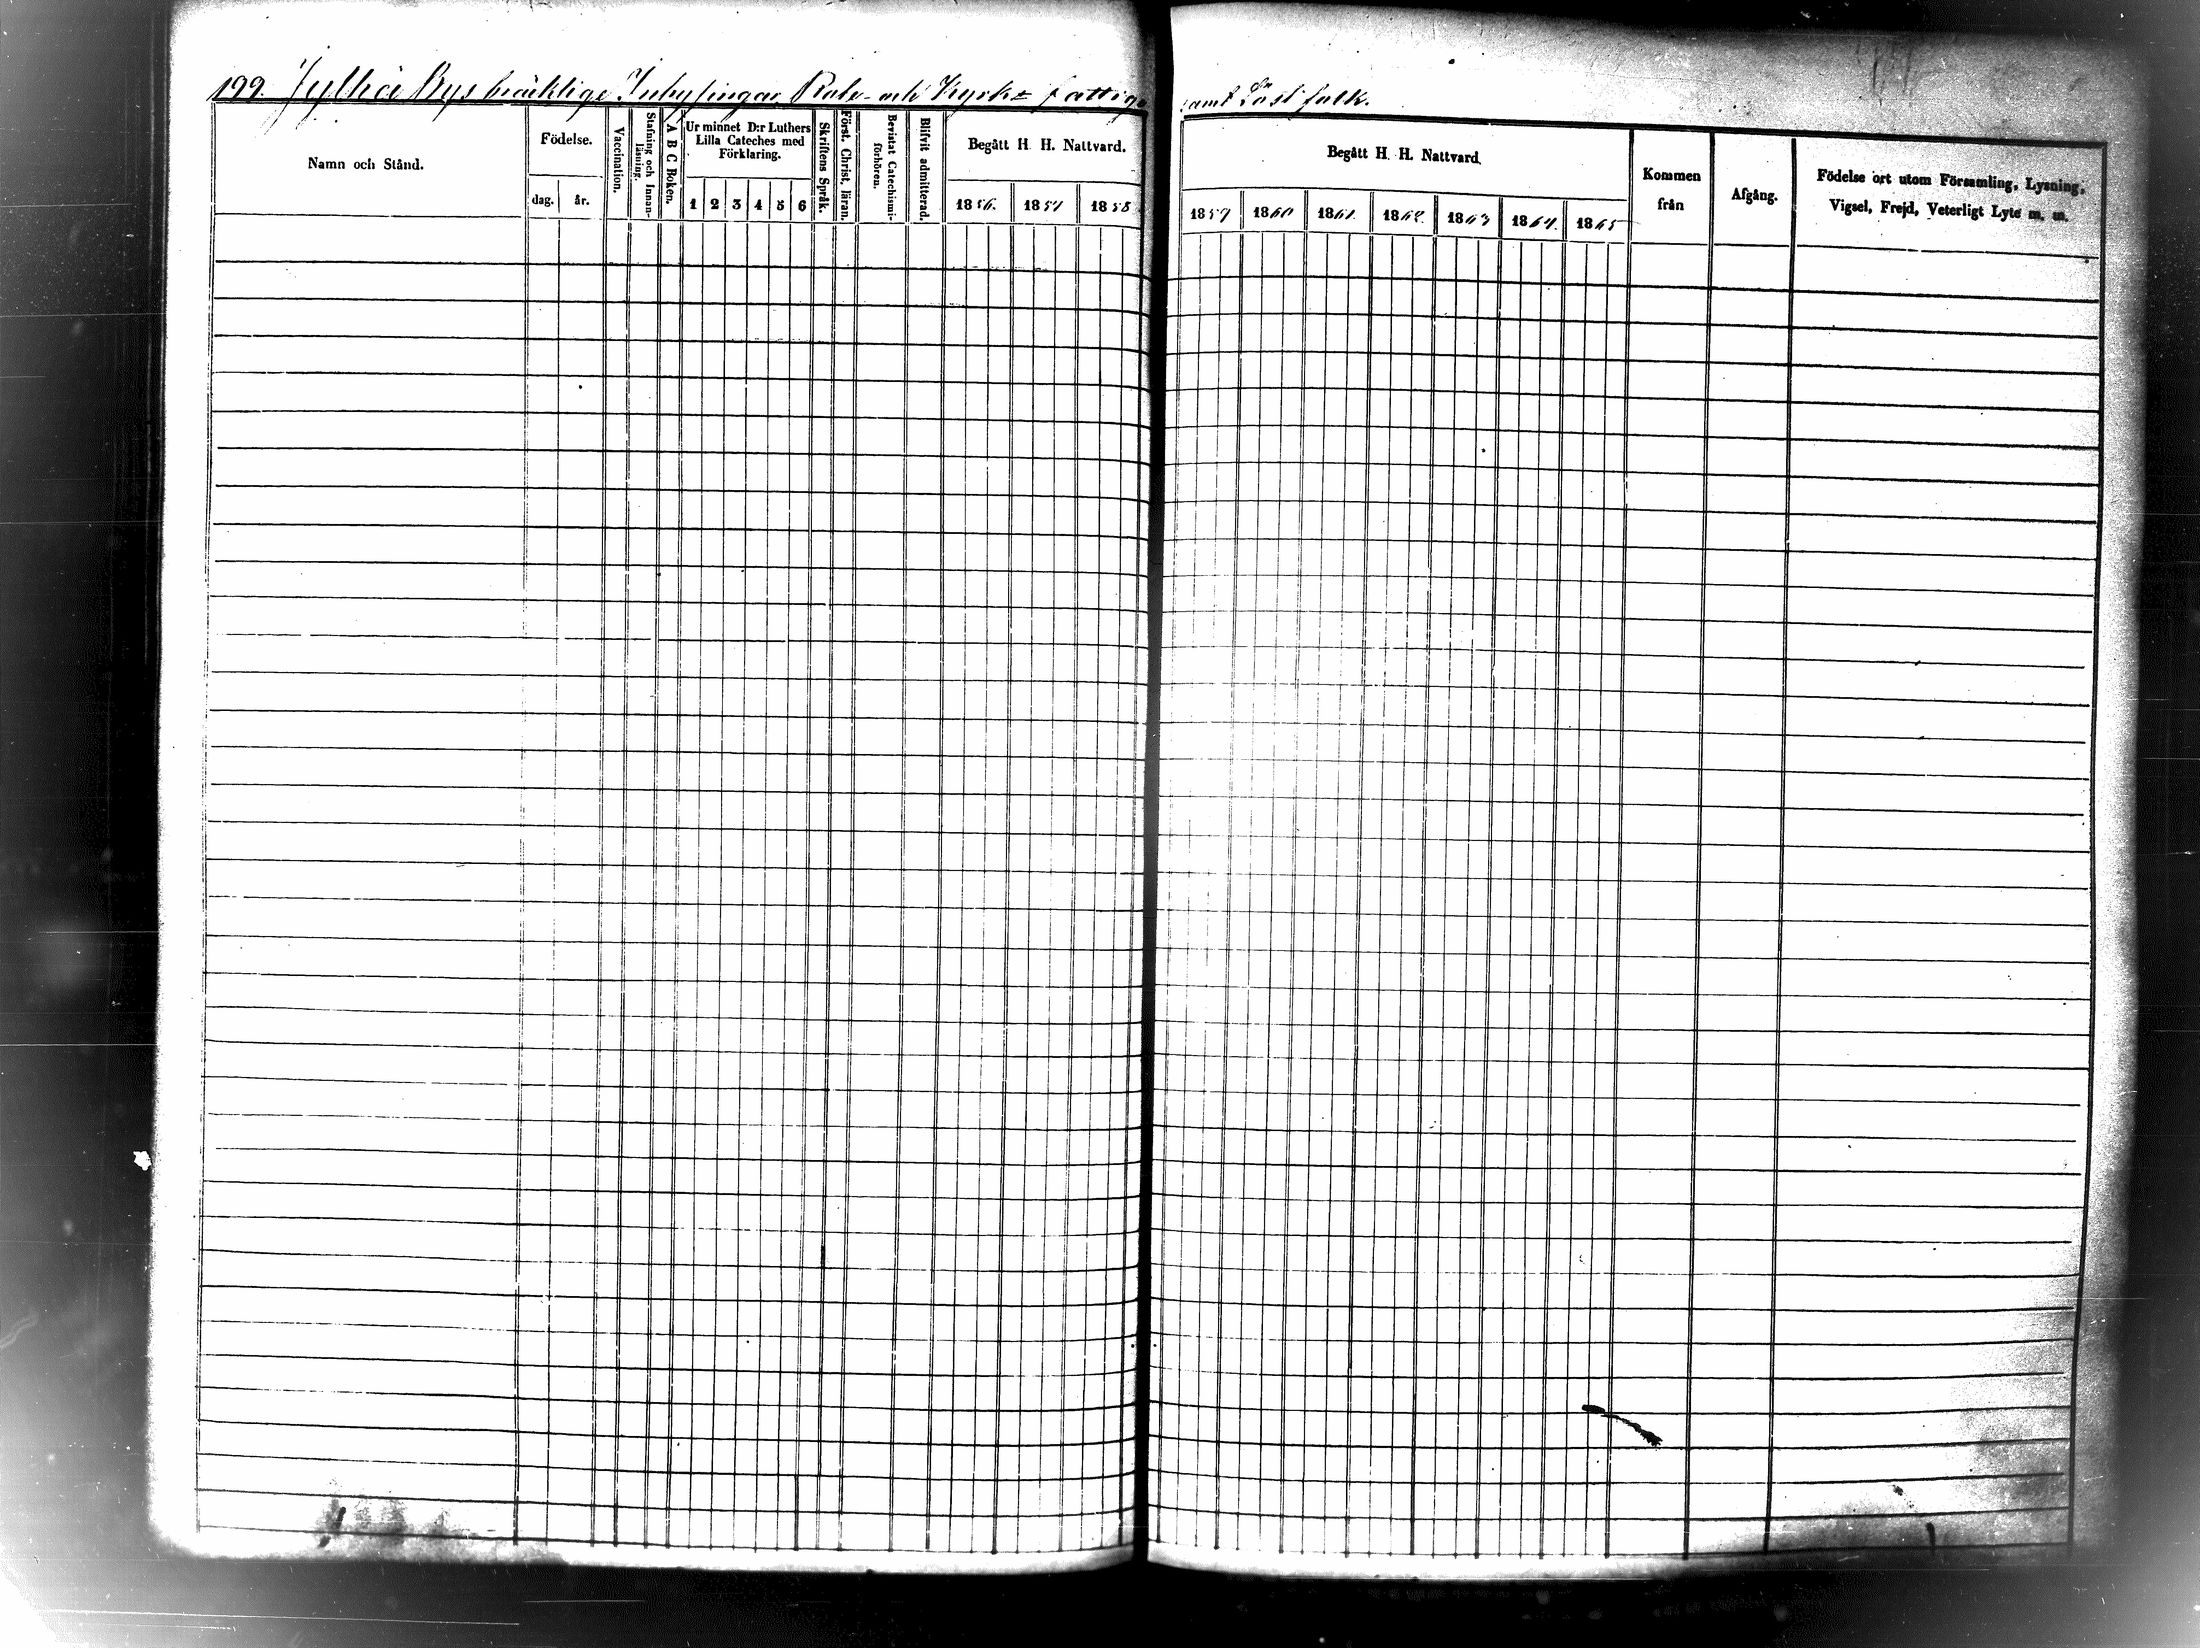 199. Jylhä Bys bräcklige Inhysingar, Rote- och Kyrko- fattige samt Löst folk.
Namn och Stånd.
Födelse.
dag.
år.
Vaccination.
Stafning och Innan-
läsning.
A B C Boken.
Ur minnet D:r Luthers
Lilla Cateches med
Förklaring.
1 2 3 4 5 6
Skriftens Språk.
Först. Christ. läran.
Bevistat Catechismi-
förhören.
Blifvit admitterad.
Begått H. H. Nattvard.
1856. 1857 1858
Begått H. H. Nattvard.
1859 1860 1861. 1862. 1863 1864. 1865
Kommen
från
Afgång.
Födelse ort utom Församling, Lysning,
Vigsel, Frejd, Veterligt Lyte m. m.